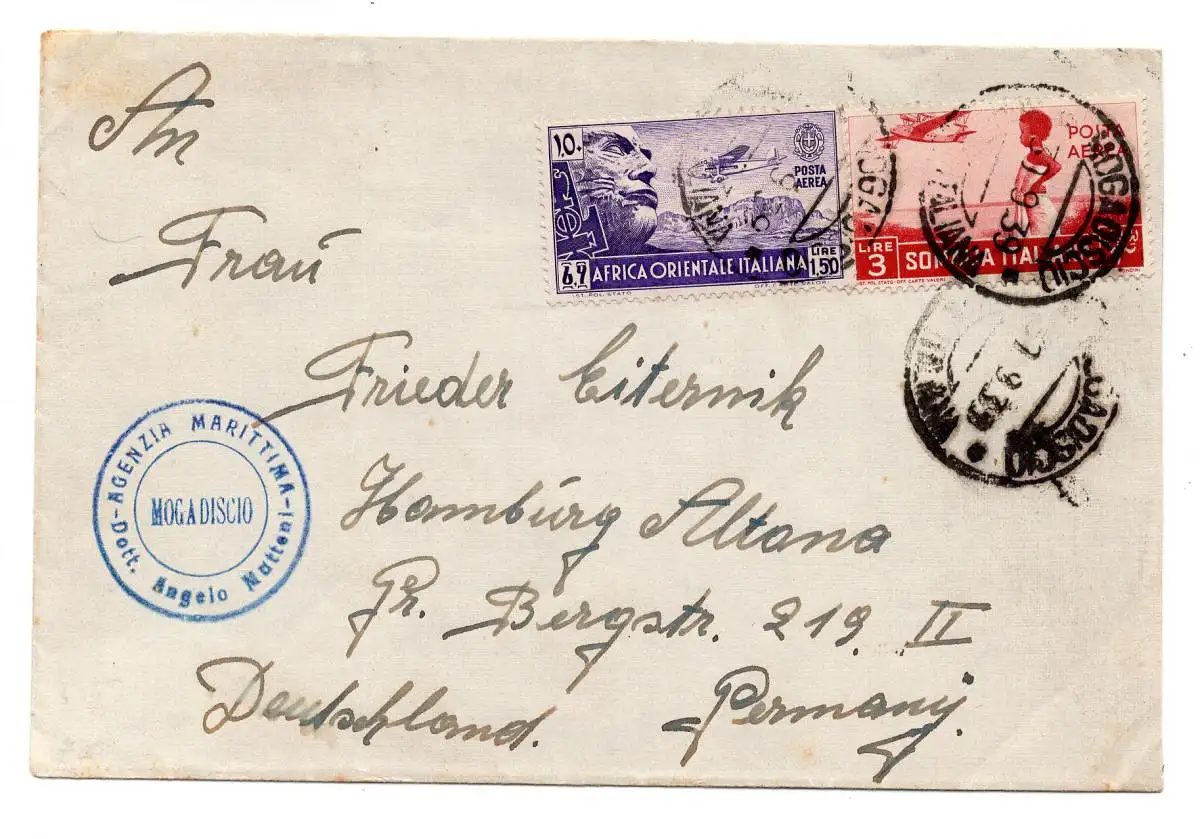 An
Frau
Frieder Eiternik
Hamburg Altona
Gr. Bergstr. 219 II
Deutschland. Germany.
POSTA AEREA
AFRICA ORIENTALE ITALIANA
LIRE 1,50
IST. POL. STATO OFF. CARTE VALORI
POSTA AEREA
LIRE 3
SOMALIA ITALIANA
IST. POL. STATO OFF. CARTE VALORI
MOGADISCIO
9 39
AGENZIA MARITTIMA
MOGADISCIO
Dott. Angelo Nattoni